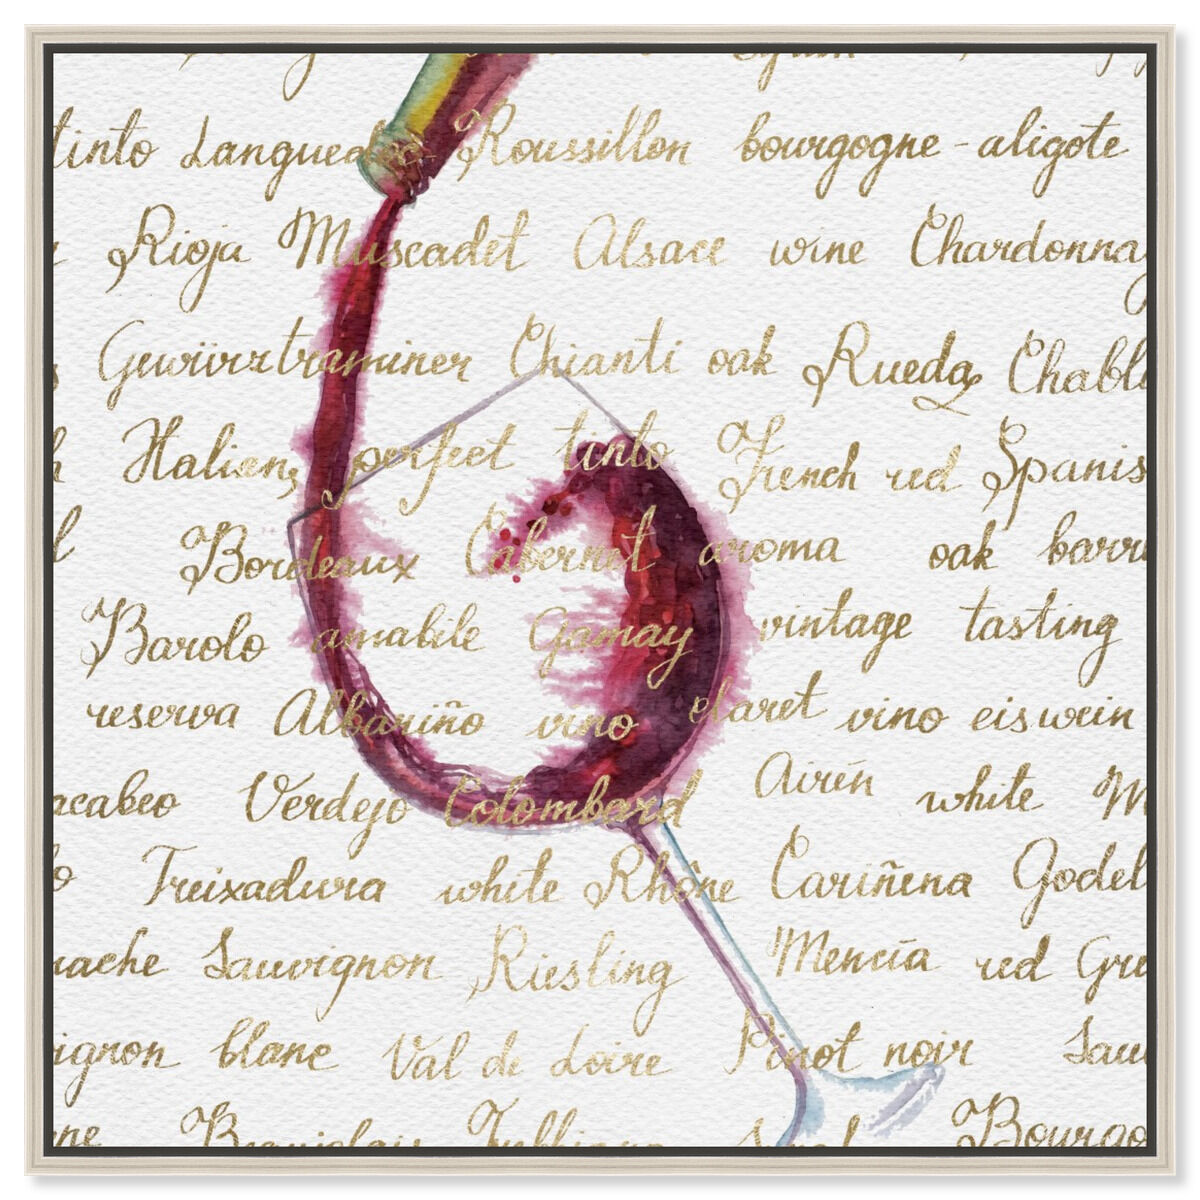 tinto Languedoc - Roussillon bourgogne - aligote
Rioja Muscadet Alsace wine Chardonnay
Gewürztraminer Chianti oak Rueda Chabli
Italien perfect tinto French red Spanis
Bordeaux Cabernet aroma oak barr
Barolo amabile Gamay vintage tasting
reserva Albariño vino claret vino eiswein
acabeo Verdejo Colombard Airén white M
Treixadura white Rhône Cariñena Godel
nache Sauvignon Riesling Mencía red Gre
ignon blanc Val de Loire Pinot noir Sau
ne Bourgo